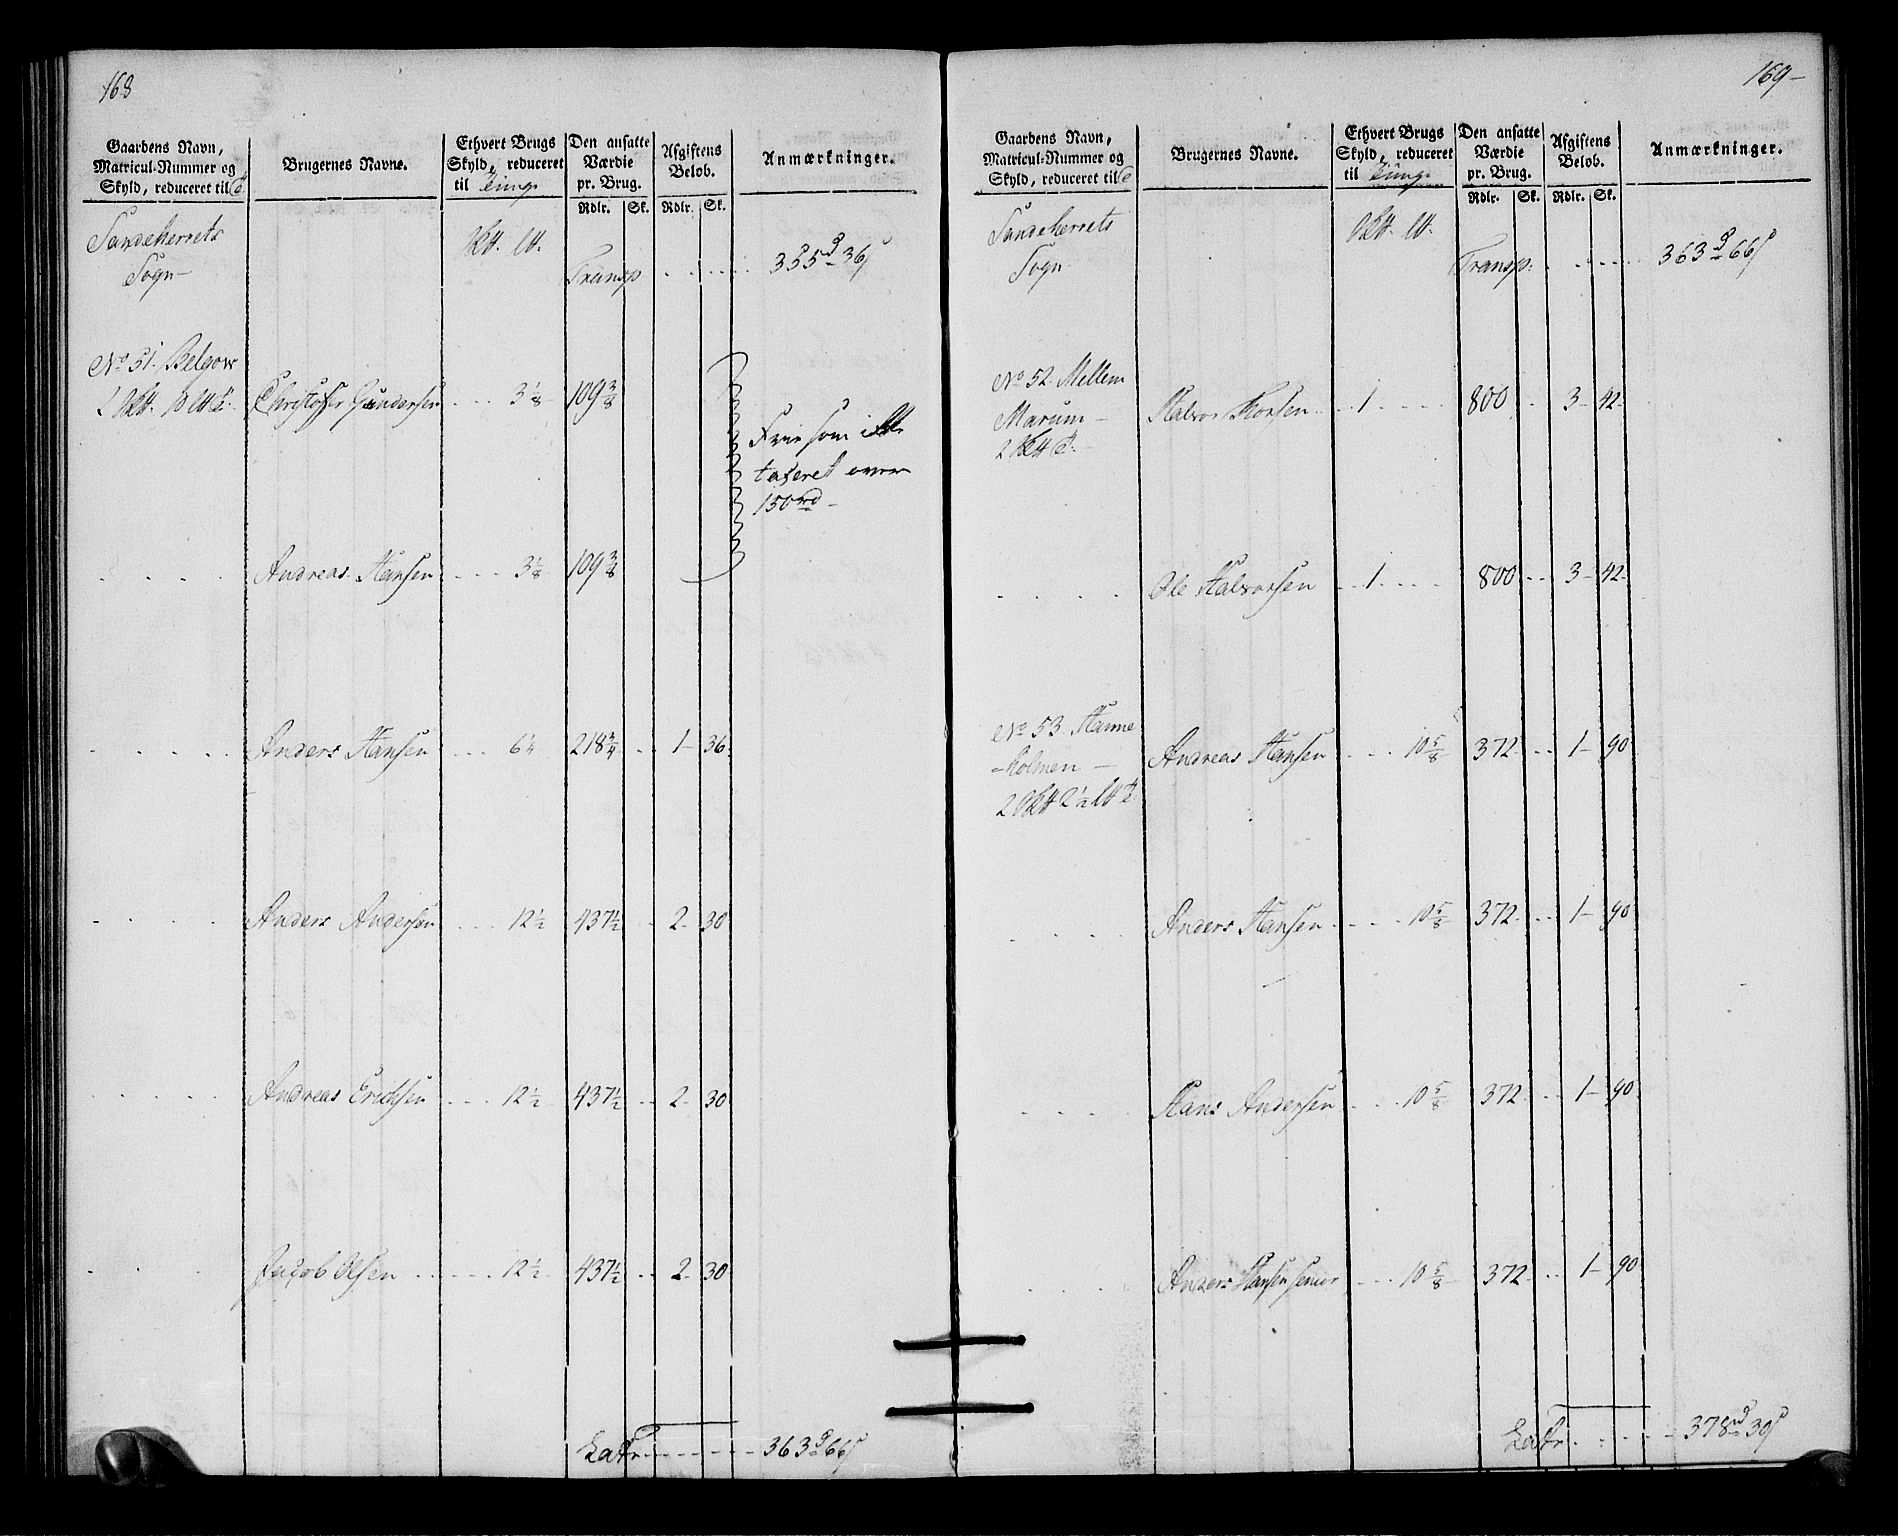 168
Gaardens Navn,
Matricul-Nummer og
Skyld, reduceret til
Brugernes Navne.
Ethvert Brugs
Skyld, reduceret
til Tunge
Den ansatte
Værdie
pr. Brug.
Rdlr. Sk.
Afgiftens
Belob.
Rdlr. Sk.
Anmærkninger.
Sandeherrets
Sogn
Transp . . . . . . 355 36
No 51. Belgow
Christofer Gundersen . . . 3 1/8 109 3/8
Frie som ikke
taxeret over
150 rd
Andreas Hansen . . . 3 1/8 109 3/8
Anders Hansen . . . 6 1/4 218 3/4 . . 1 36.
Anders Andersen . . . 12 1/2 437 1/2 . . 2 30
Andreas Erichsen . . . 12 1/2 437 1/2 . . 2 30
Jacob Olsen . . . . . 12 1/2 437 1/2 . . 2 30
Latr. . . . . . 363 66
169
Gaardens Navn,
Matricul-Nummer og
Skyld, reduceret til
Brugernes Navne.
Ethvert Brugs
Skyld, reduceret
til Tunge
Den ansatte
Værdie
pr. Brug.
Rdlr. Sk.
Afgiftens
Belob.
Rdlr. Sk.
Anmærkninger.
Sandeherrets
Sogn
Transp: . . . . . . 363 66
No 52. Mellem
Marum
Halvor Thorsen . . 1 . . . . 800 . . 3 42
Ole Halvorsen . . 1 . . . . 800 . . 3 42
No 53. Hanne
=holmen
Andreas Hansen . . . 10 5/8 372 . . 1 90
Anders Hansen . . . 10 5/8 372 . . 1 90
Hans Andersen . . . 10 5/8 372 . . 1 90
Anders Hansen senior . . . 10 5/8 372 . . 1 90
Latr. . . . . . 378 30